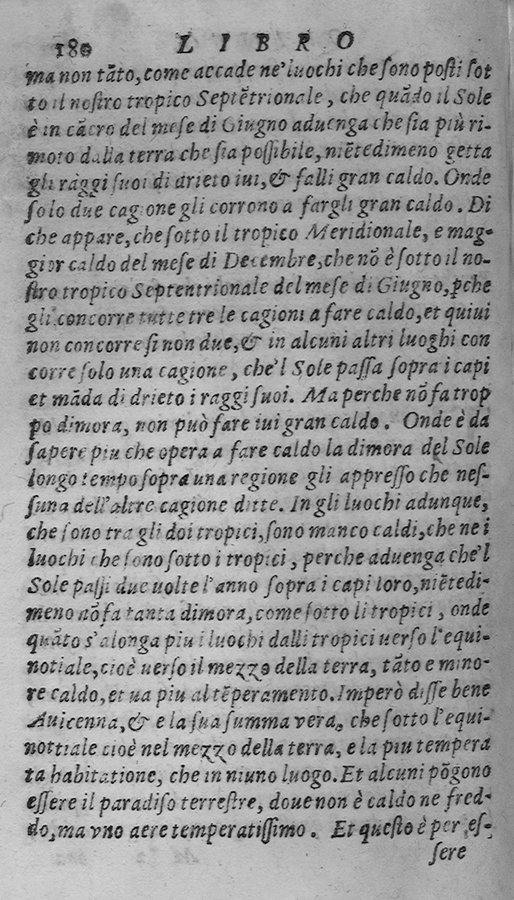 180 LIBRO
ma non tãto, come accade ne' luochi che ſono poſti ſot
to il noſtro tropico Septẽtrionale, che quãdo il Sole
è in cãcro del meſe di Giugno aduenga che ſia più ri-
moto dalla terra che ſia poſſibile, niẽtedimeno getta
gli raggi ſuoi di drieto iui, & falli gran caldo. Onde
ſolo due cagione gli corrono a fargli gran caldo. Di
che appare, che ſotto il tropico Meridionale, e mag-
gior caldo del meſe di Decembre, che nõ è ſotto il no-
ſtro tropico Septentrionale del meſe di Giugno, ꝑche
gli concorre tutte tre le cagioni a fare caldo, et quiui
non concorre ſi non due, & in alcuni altri luoghi con
corre ſolo una cagione, che'l Sole paſſa ſopra i capi
et mãda di drieto i raggi ſuoi. Ma perche nõ fa trop
po dimora, non può fare iui gran caldo. Onde è da
ſapere piu che opera a fare caldo la dimora del Sole
longo tempo ſopra una regione gli appreſſo che neſ-
ſuna dell'altre cagione ditte. In gli luochi adunque,
che ſono tra gli doi tropici, ſono manco caldi, che ne i
luochi che ſono ſotto i tropici, perche aduenga che'l
Sole paſſi due uolte l'anno ſopra i capi loro, niẽtedi-
meno nõ fa tanta dimora, come ſotto li tropici, onde
quãto s'alonga piu i luochi dalli tropici uerſo l'equi-
notiale, cioè uerſo il mezzo della terra, tãto e mino-
re caldo, et ua piu al tẽperamento. Imperò diſſe bene
Auicenna, & e la ſua ſumma vera, che ſotto l'equi-
nottiale cioè nel mezzo della terra, e la piu tempera
ta habitatione, che in niuno luogo. Et alcuni põgono
eſſere il paradiſo terreſtre, doue non è caldo ne fred-
do, ma vno aere temperatiſſimo. Et queſto è per eſ-
ſere